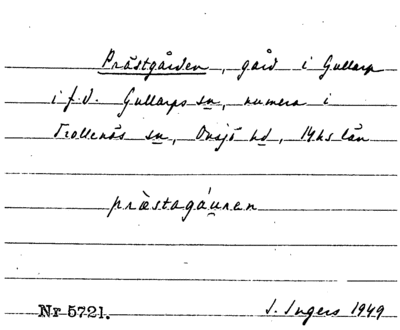 Prästgården, gård i Gullarp
i f.d. Gullarps sn, numera i
Trollenäs sn, Onsjö hd, Mhs län
præstagáunen
Nr 5721. I. Ingers 1949